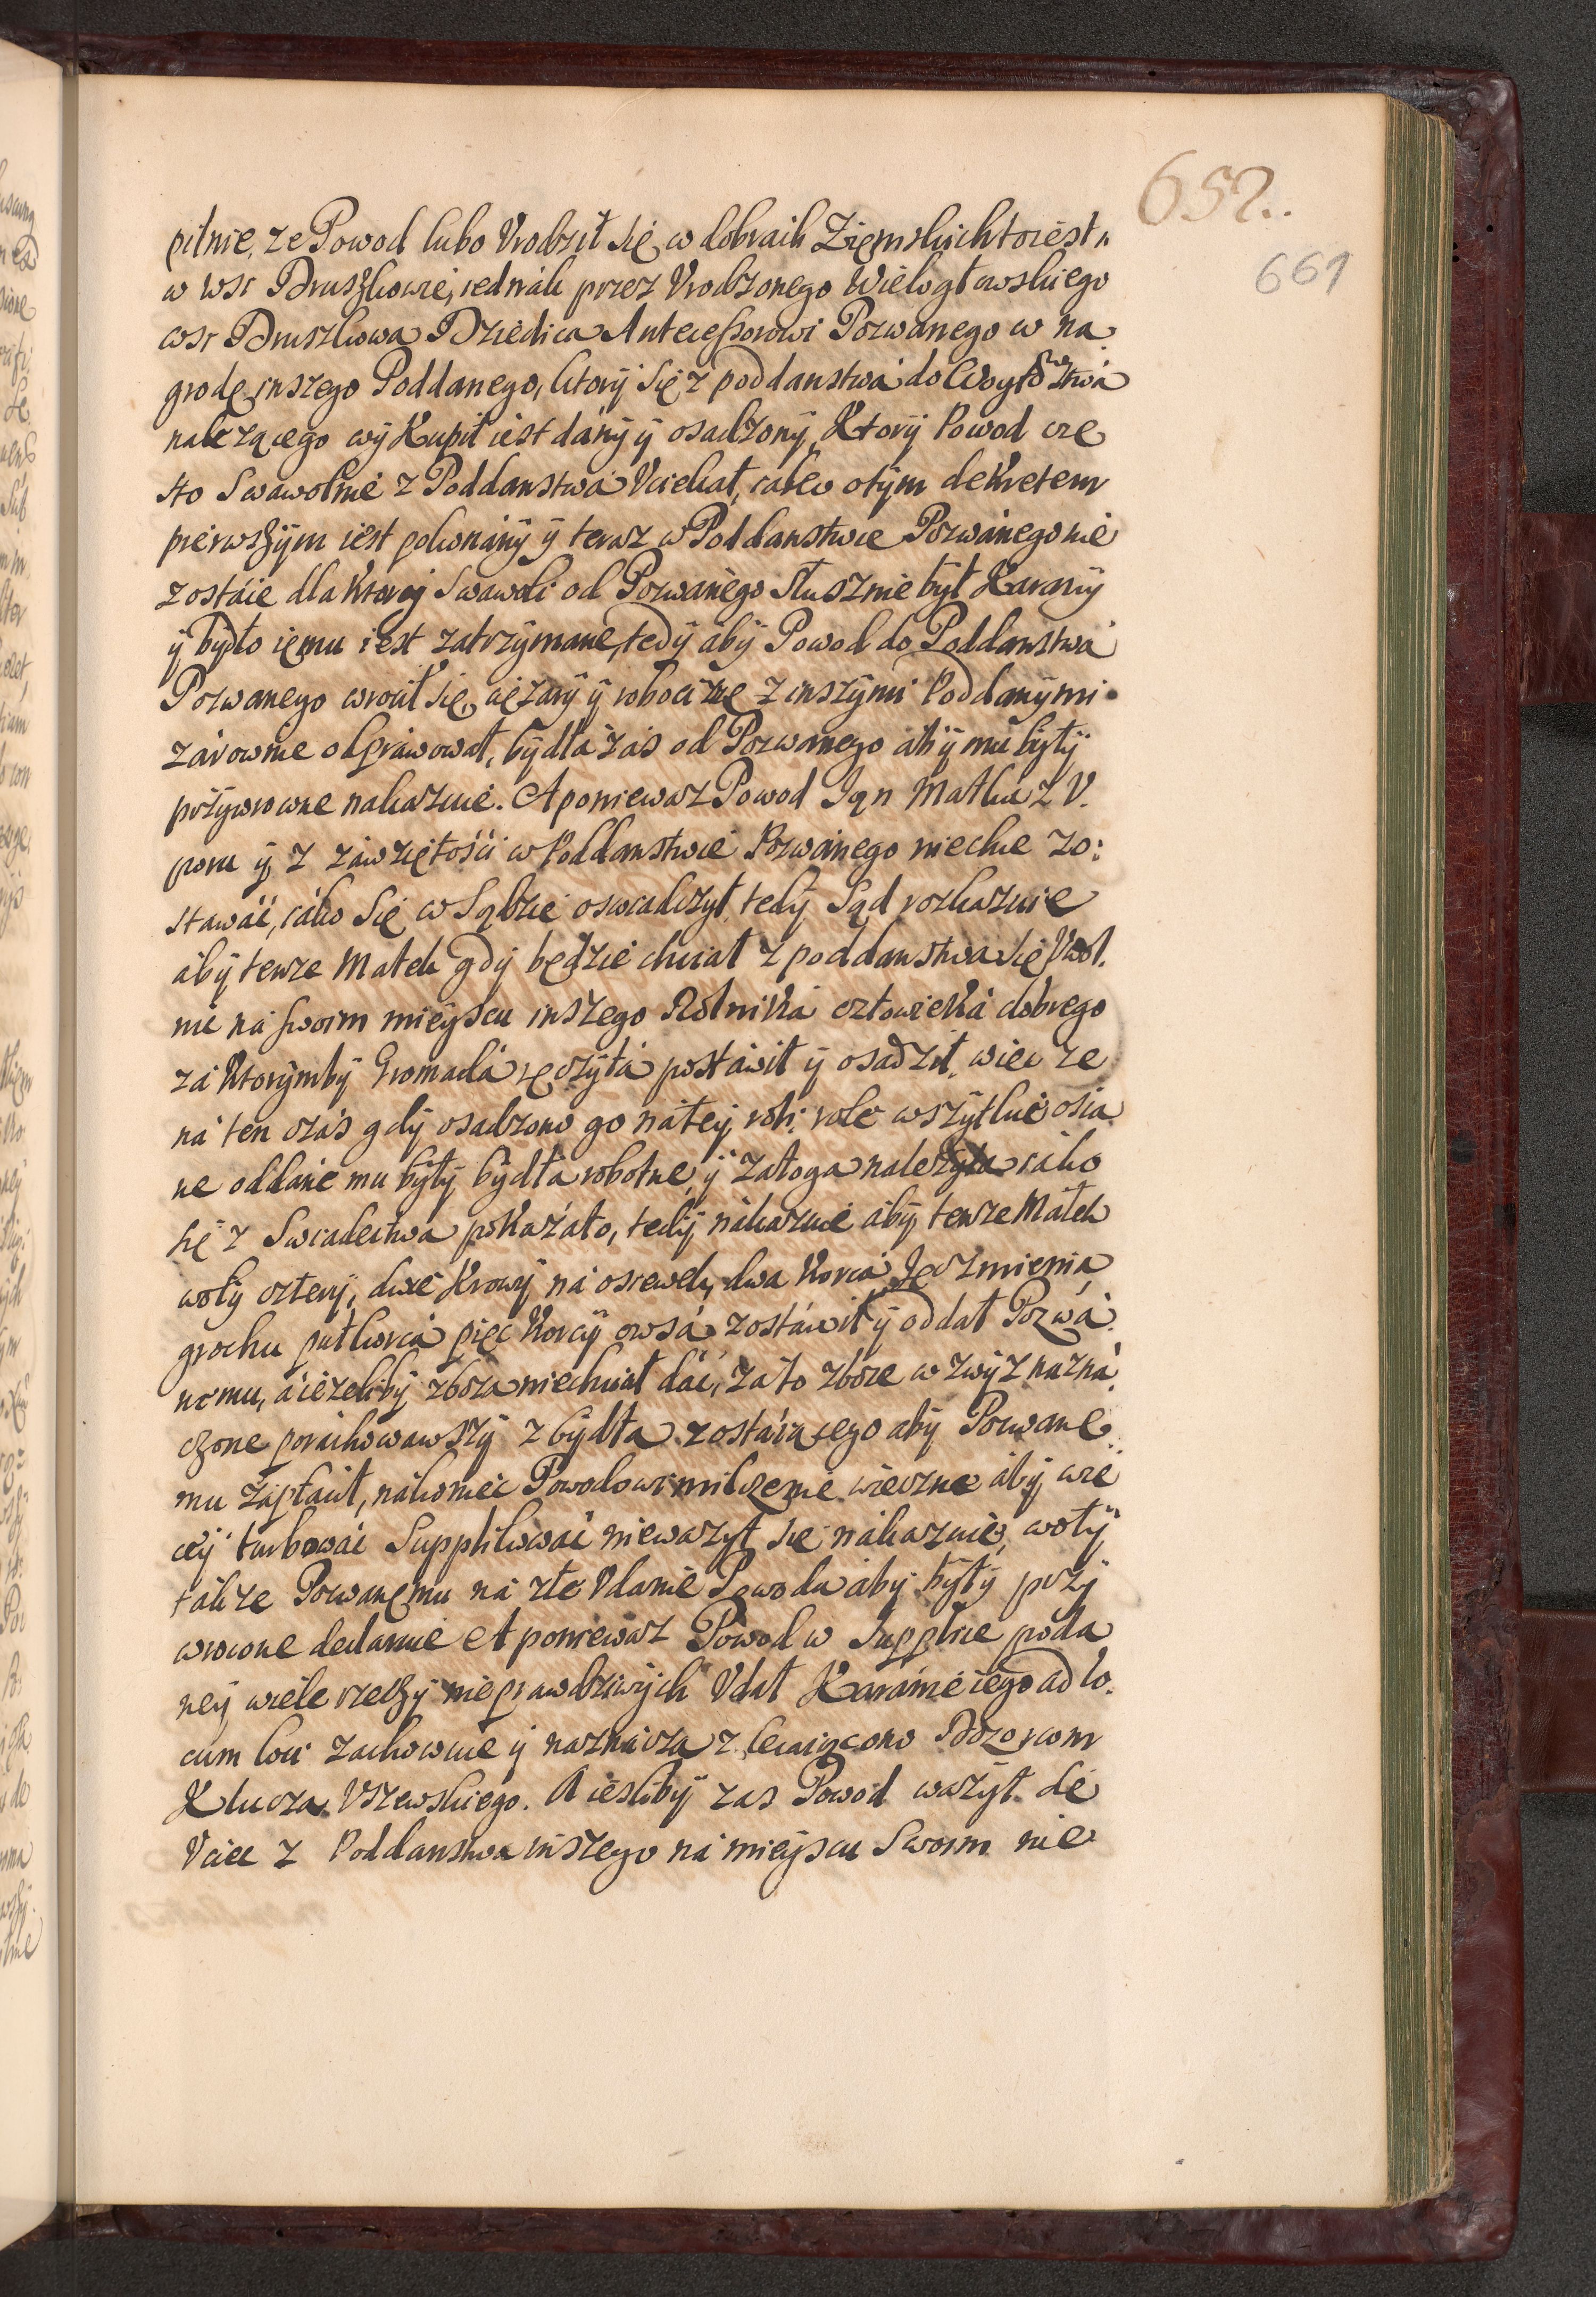 652..
661
pilnie, ze Powod lubo Vrodził się w dobrach Ziemskich to iest
w wsi Druszkowie, iednák przez Vrodzonego Wielogłowskiego
wsi Druszkowa Dziedica Antecessorowi Pozwanego w na
grodę inszego Poddanego, ktorÿ się z poddanstwá do Woytowstwá
należącego wÿkupił iest dánÿ ÿ osadzonÿ, KtorÿPowod czę
sto Swawolnie z Poddanstwá Vciekał, iáko otÿm dekretem
pierwszÿm iest pokonánÿ ÿ teraz w Poddanstwie Pozwánego nie
zostáie dla ktorej Swawoli od Pozwanégo słusznie bÿł Karanÿ
ÿ bÿdło iemu iest zatrzÿmane, tedÿ abÿ Powod do Poddanstwá
Pozwanego wrocił się, cięzarÿ ÿ robociznę z inszÿmi Poddanÿmi
zárownie odpráwował, bÿdła zás od Pozwanego abÿ mu bÿłÿ
przÿwrocone nakazuie. A poniewasz Powod Jan Matka z V.
poru ÿ z záwziętości w Poddanstwie Pozwánego niechce zo:
stawáć, iáko się w Sądzie oswiadczÿł, tedÿ Sąd rozkazuie
ábÿ tenze Matek gdÿ będzie chciał z poddanstwa się Vwol.
nic ná swoim mieÿscu inszego Rolniká człowieká dobrego
zá ktorÿmbÿ Gromadá ręczÿłá postáwił ÿ osadził, wiec ze
ná ten czás gdÿ osadzono go ná teÿ roli, role wszÿtkie osia
ne oddane mu bÿłÿ bÿdła robotne, ÿ załoga nalezÿta iáko
się z Swiadectwa pokazáło, tedÿ nákazuie abÿ tenze Matek
wołÿ czterÿ, dwie Krowÿ ná osiewek, dwa Korca Jęczmienia
grochu pułkorcá pięc Korcÿ owsá, zostáwił ÿ oddał Pozwá
nemu, á iezelibÿ zboza niechciał dác, za to zboze w zwÿz nazná
czone poráchowawszÿ z bÿdła zostáiącego abÿ Pozwane
mu zápłacił, nákoniec Powodowi milczenie wieczne ábÿ wię
ceÿ turbowác Supplikowác niewazÿł się nákazuie, wołÿ
tákze Pozwanemu ná złe Vdanie Powoda ábÿ bÿłÿ przÿ
wrocone declaruie A poniewasz Powod w Supplice poda
neÿ wiele rzeczÿ nieprawdziwÿch Vdał Karánie iego ad lo.
cum loci zachowuie ÿ náznácza zlecaiąc ono Dozorcom
Klucza Vszewskiego. A iesliby zas Powod wazÿł się
Vciec z Poddanstwa inszego ná mieÿscu Swoim nie